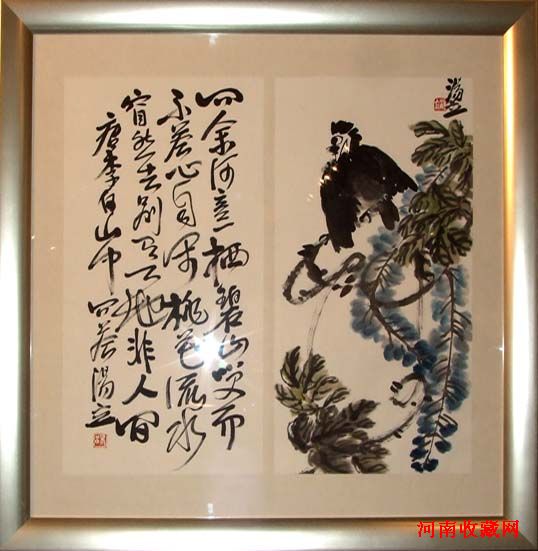 问余何意栖碧山笑而
不答心自闲桃花流水
窅然去别有天地非人间
唐李白山中问答 湯立
湯立
河南收藏网